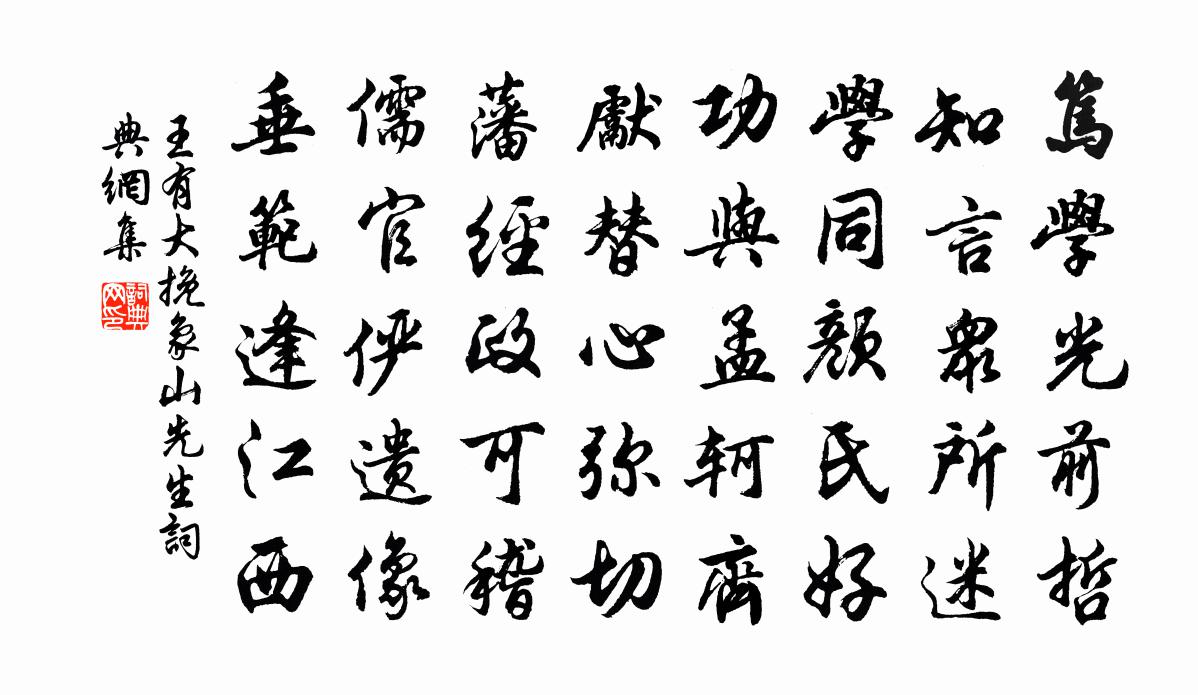 篤學光前哲
知言眾所迷
學同顏氏好
功與孟軻齊
獻替心弥切
藩經政可稽
儒官儼遺像
垂範逢江西
王有大挽象山先生詞
典網集
詞典网印